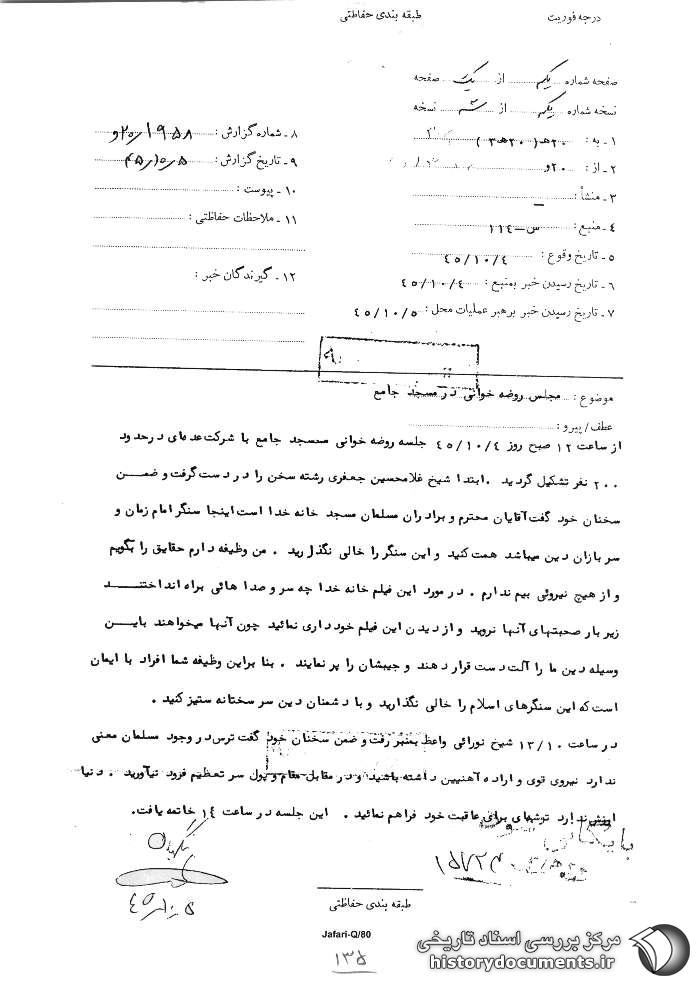 درجه فوریت
طبقه بندی حفاظتی
صفحه شماره یکم از یک صفحه
نسخه شماره یکم از سه نسخه
۱ - به : ۲۰هـ ( ۲۰هـ ۳ )
۲ - از : ۲۰و
۳ - منشأ : -
۴ - منبع : س-۱۱۴
۵ - تاریخ وقوع : ۴۵/۱۰/۴
۶ - تاریخ رسیدن خبر بمنبع : ۴۵/۱۰/۴
۷ - تاریخ رسیدن خبر برهبر عملیات محل : ۴۵/۱۰/۵
۸ - شماره گزارش : ۱۹۵۸/۲۰و
۹ - تاریخ گزارش : ۴۵/۱۰/۵
۱۰ - پیوست :
۱۱ - ملاحظات حفاظتی :
۱۲ - گیرندگان خبر :
موضوع : مجلس روضه خوانی در مسجد جامع
عطف/ پیرو :
از ساعت ۱۲ صبح روز ۴۵/۱۰/۴ جلسه روضه خوانی مسجد جامع با شرکت عده‌ای در حدود
۲۰۰ نفر تشکیل گردید . ابتدا شیخ غلامحسین جعفری رشته سخن را در دست گرفت و ضمن
سخنان خود گفت آقایان محترم و برادران مسلمان مسجد خانه خدا است اینجا سنگر امام زمان و
سربازان دین میباشد همت کنید و این سنگر را خالی نگذارید . من وظیفه دارم حقایق را بگویم
و از هیچ نیروئی بیم ندارم . در مورد این فیلم خانه خدا چه سر و صدا هائی براه انداختند
زیر بار صحبتهای آنها نروید و از دیدن این فیلم خودداری نمائید چون آنها میخواهند باین
وسیله دین ما را آلت دست قرار دهند و جیبشان را پر نمایند . بنا براین وظیفه شما افراد با ایمان
است که این سنگرهای اسلام را خالی نگذارید و با دشمنان دین سر سختانه ستیز کنید .
در ساعت ۱۳/۱۰ شیخ نورائی واعظ بمنبر رفت و ضمن سخنان خود گفت ترس در وجود مسلمان معنی
ندارد نیروی قوی و اراده آهنین داشته باشید و در مقابل مقام و پول سر تعظیم فرود نیاورید . دنیا
ارزش ندارد توشه‌ای برای عاقبت خود فراهم نمائید . این جلسه در ساعت ۱۴ خاتمه یافت.
بایگانی
۱۵۷۲۴
۴۵/۱۰/۵
طبقه بندی حفاظتی
Jafari-Q/80
۱۳۵
مرکز بررسی اسناد تاریخی
historydocuments.ir